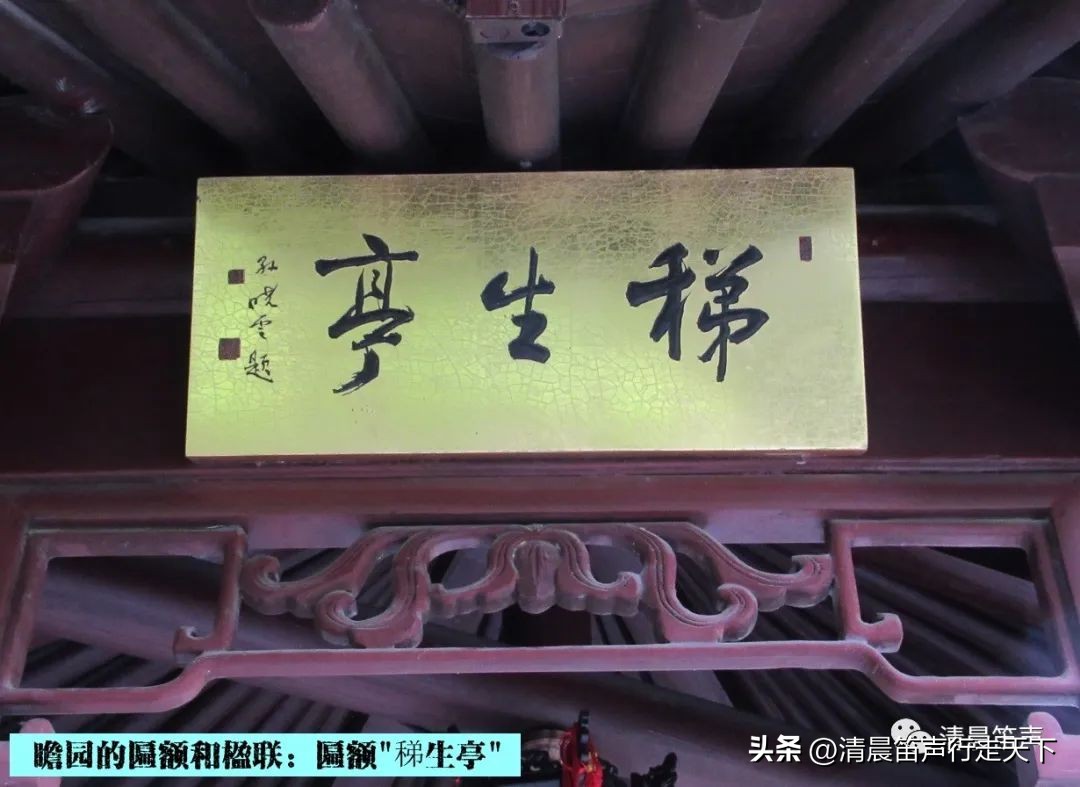 稊生亭
孙晓云题
瞻园的匾额和楹联：匾额"稊生亭"
清晨笛声
头条 @清晨笛声行走天下